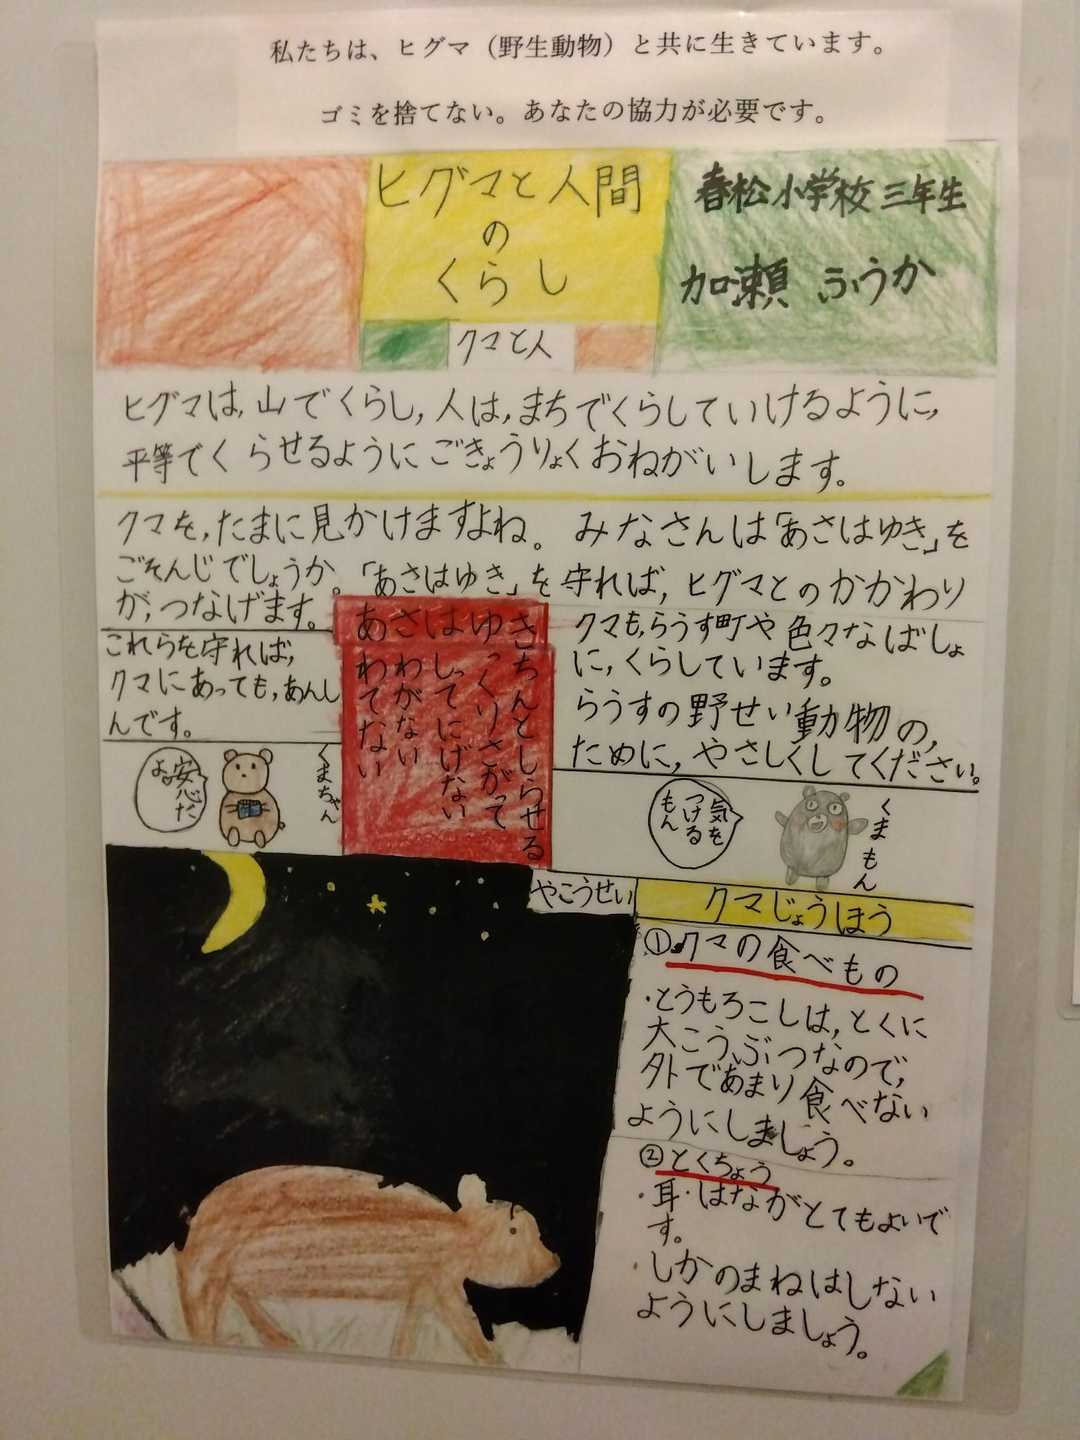 私たちは、ヒグマ（野生動物）と共に生きています。
ゴミを捨てない。あなたの協力が必要です。
ヒグマと人間
の
くらし
春松小学校三年生
加瀬 ふうか
クマと人
ヒグマは,山でくらし,人は,まちでくらしていけるように,
平等でくらせるようにごきょうりょくおねがいします。
クマを,たまに見かけますよね。みなさんは「あさはゆき」を
ごそんじでしょうか。「あさはゆき」を守れば,ヒグマとのかかわり
が,つなげます。
これらを守れば,
クマにあっても,あんし
んです。
あさはゆき
きちんとしらせる
ゆっくりさがって
はしってにげない
さわがない
あわてない
クマも,らうす町や色々なばしょ
に,くらしています。
らうすの野せい動物の,
ために,やさしくしてください。
くまちゃん
安心だ
よ
くまもん
気を
つける
もん
やこうせい
クマじょうほう
①クマの食べもの
・とうもろこしは,とくに
大こうぶつなので,
外であまり食べない
ようにしましょう。
②とくちょう
・耳・はながとてもよいで
す。
・しかのまねはしない
ようにしましょう。